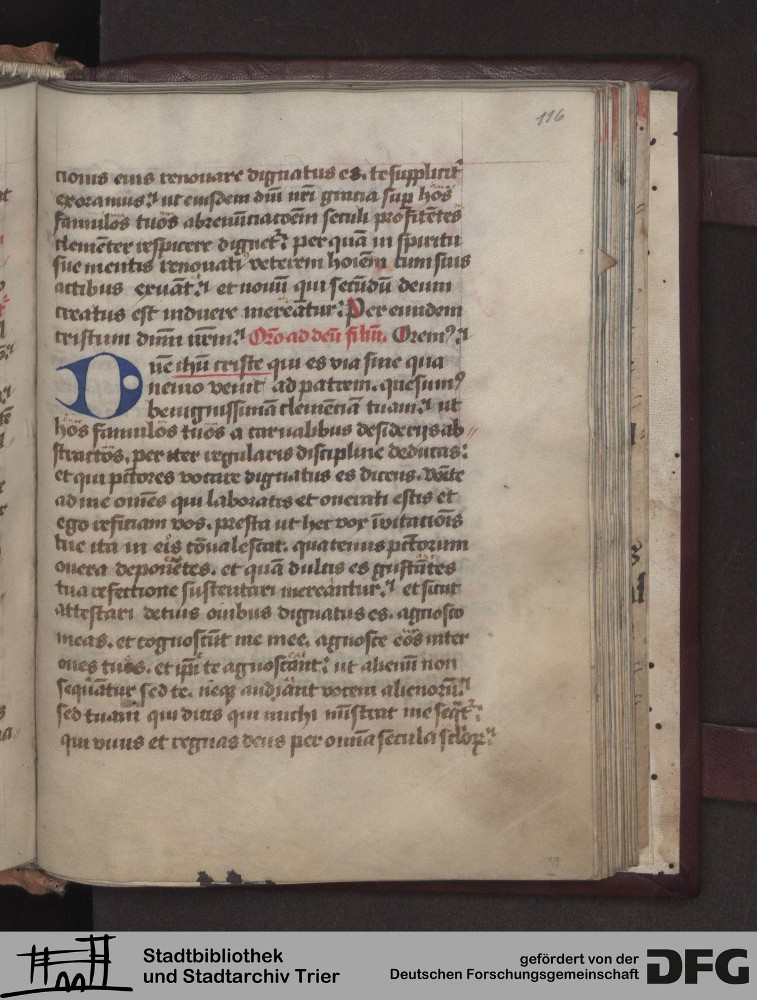 116
cionis eius renouare dignatus es. te supplicit᷒
exoramus. ut eiusdem dn̄i nr̄i gracia sup hos
famulos tuos abrenūciacōem seculi profitētes
clemēter respicere dignet᷒. per quā in spiritu
sue mentis renouati veterem hoīem cum suis
actibus exuāt. et nouū qui secūdū deum
creatus est induere mereātur. Per eundem
cristum dnm̄ nr̄m. Oro ad deū filiū. Orem᷒.
Dn̄e ihū criste qui es via sine qua
nemo venit ad patrem. quesum᷒
benignissimā clemēciā tuam. ut
hos famulos tuos a carnalibus desiderijs ab
stractos. per iter regularis discipline deducas.
et qui pctores vocare dignatus es dicens. Venīte
ad me om̄es qui laboratis et onerati estis et
ego reficiam vos. presta ut hec vox īuitacionis
tue ita in eis cōualescat. quatenus pctorum
onera deponētes. et quā dulcis es gustātes
tua refectione sustentari mereantur. et sicut
attestari de tuis ouibus dignatus es. agnosco
meas. et cognoscūt me mee. agnosce eos inter
oues tuas. et ip̄i te agnoscant. ut alienū non
sequātur sed te. neq̄ audiant vocem alienorū.
sed tuam qui dicis qui michi mīstrat me seqt᷒.
qui viuis et regnas deus per omīa secula sclor̄.
Stadtbibliothek
und Stadtarchiv Trier
gefördert von der
Deutschen Forschungsgemeinschaft
DFG